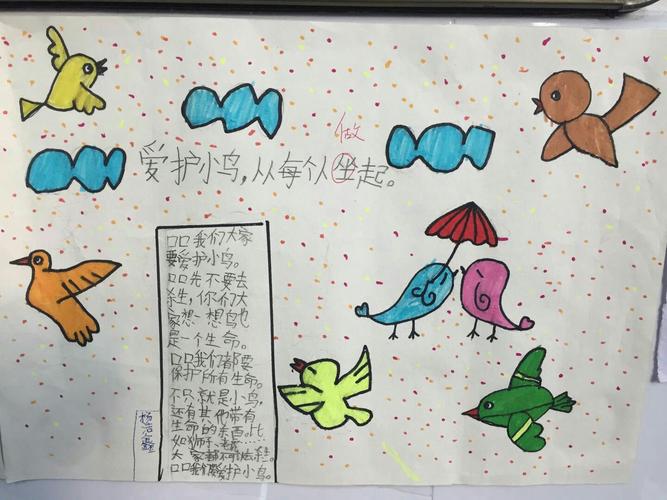 做
爱护小鸟,从每个人坐起。
口口我们大家
要爱护小鸟。
口口先不要去
杀生,你们大
家想一想鸟也
是一个生命。
口口我们都要
保护所有生命。
不只就是小鸟,
还有其他带有
生命的东西。比
如狮子、
大家都不可去杀。
口口我们爱护小鸟。
杨